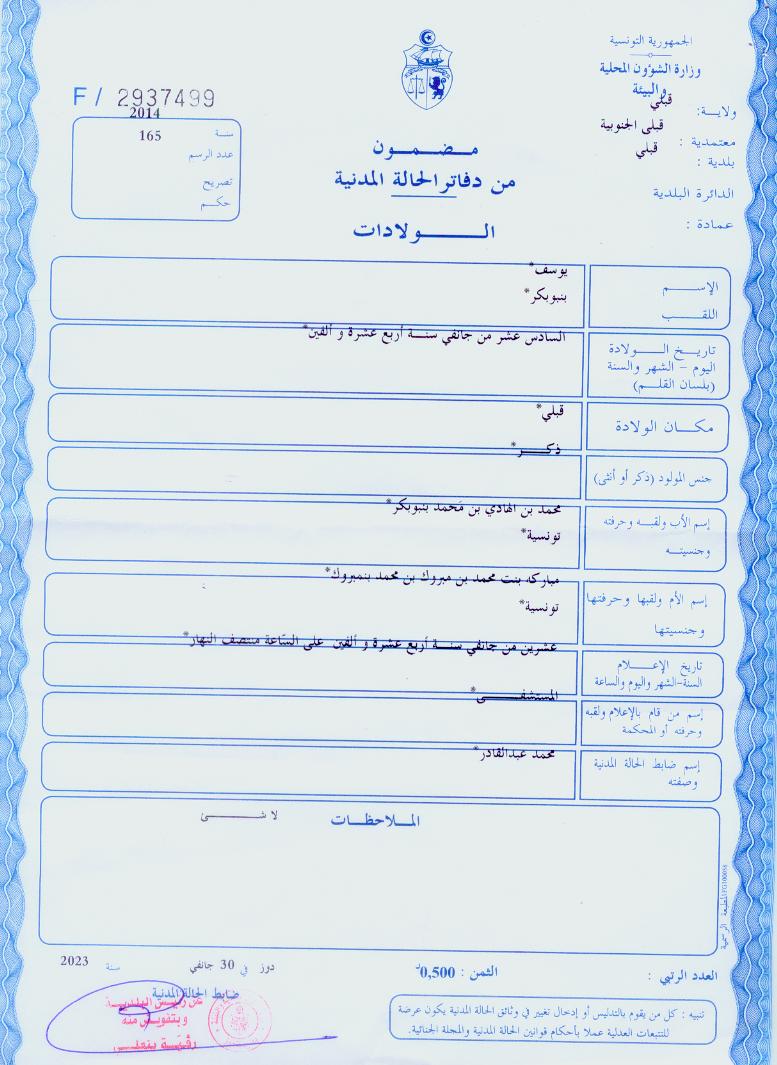 الجمهورية التونسية
وزارة الشؤون المحلية
والبيئة
ولاية: قبلي
معتمدية : قبلى الجنوبية
بلدية : قبلي
الدائرة البلدية
عمادة :
F / 2937499
سنة 2014
عدد الرسم 165
تصريح
حكم
مضمون
من دفاتر الحالة المدنية
الولادات
الإسم يوسف*
اللقب بنبوبكر*
تاريخ الولادة
اليوم - الشهر والسنة
(بلسان القلم)
السادس عشر من جانفي سنة أربع عشرة و ألفين*
مكان الولادة قبلي*
جنس المولود (ذكر أو أنثى) ذكر*
إسم الأب ولقبه وحرفته
وجنسيته
محمد بن الهادي بن محمد بنبوبكر*
تونسية*
إسم الأم ولقبها وحرفتها
وجنسيتها
مباركه بنت محمد بن مبروك بن محمد بنمبروك*
تونسية*
تاريخ الإعلام
السنة-الشهر واليوم والساعة
عشرين من جانفي سنة أربع عشرة و ألفين على الساعة منتصف النهار*
إسم من قام بالإعلام ولقبه
وحرفته أو المحكمة
المستشفى*
إسم ضابط الحالة المدنية
وصفته
محمد عبدالقادر*
الملاحظات لا شئ
المطبعة الرسمية
العدد الرتبي :
الثمن : 0,500د
دوز في 30 جانفي سنة 2023
ضابط الحالة المدنية
عن رئيس البلدية
وبتفويض منه
تنبيه : كل من يقوم بالتدليس أو إدخال تغيير في وثائق الحالة المدنية يكون عرضة
للتتبعات العدلية عملا بأحكام قوانين الحالة المدنية والمجلة الجنائية.